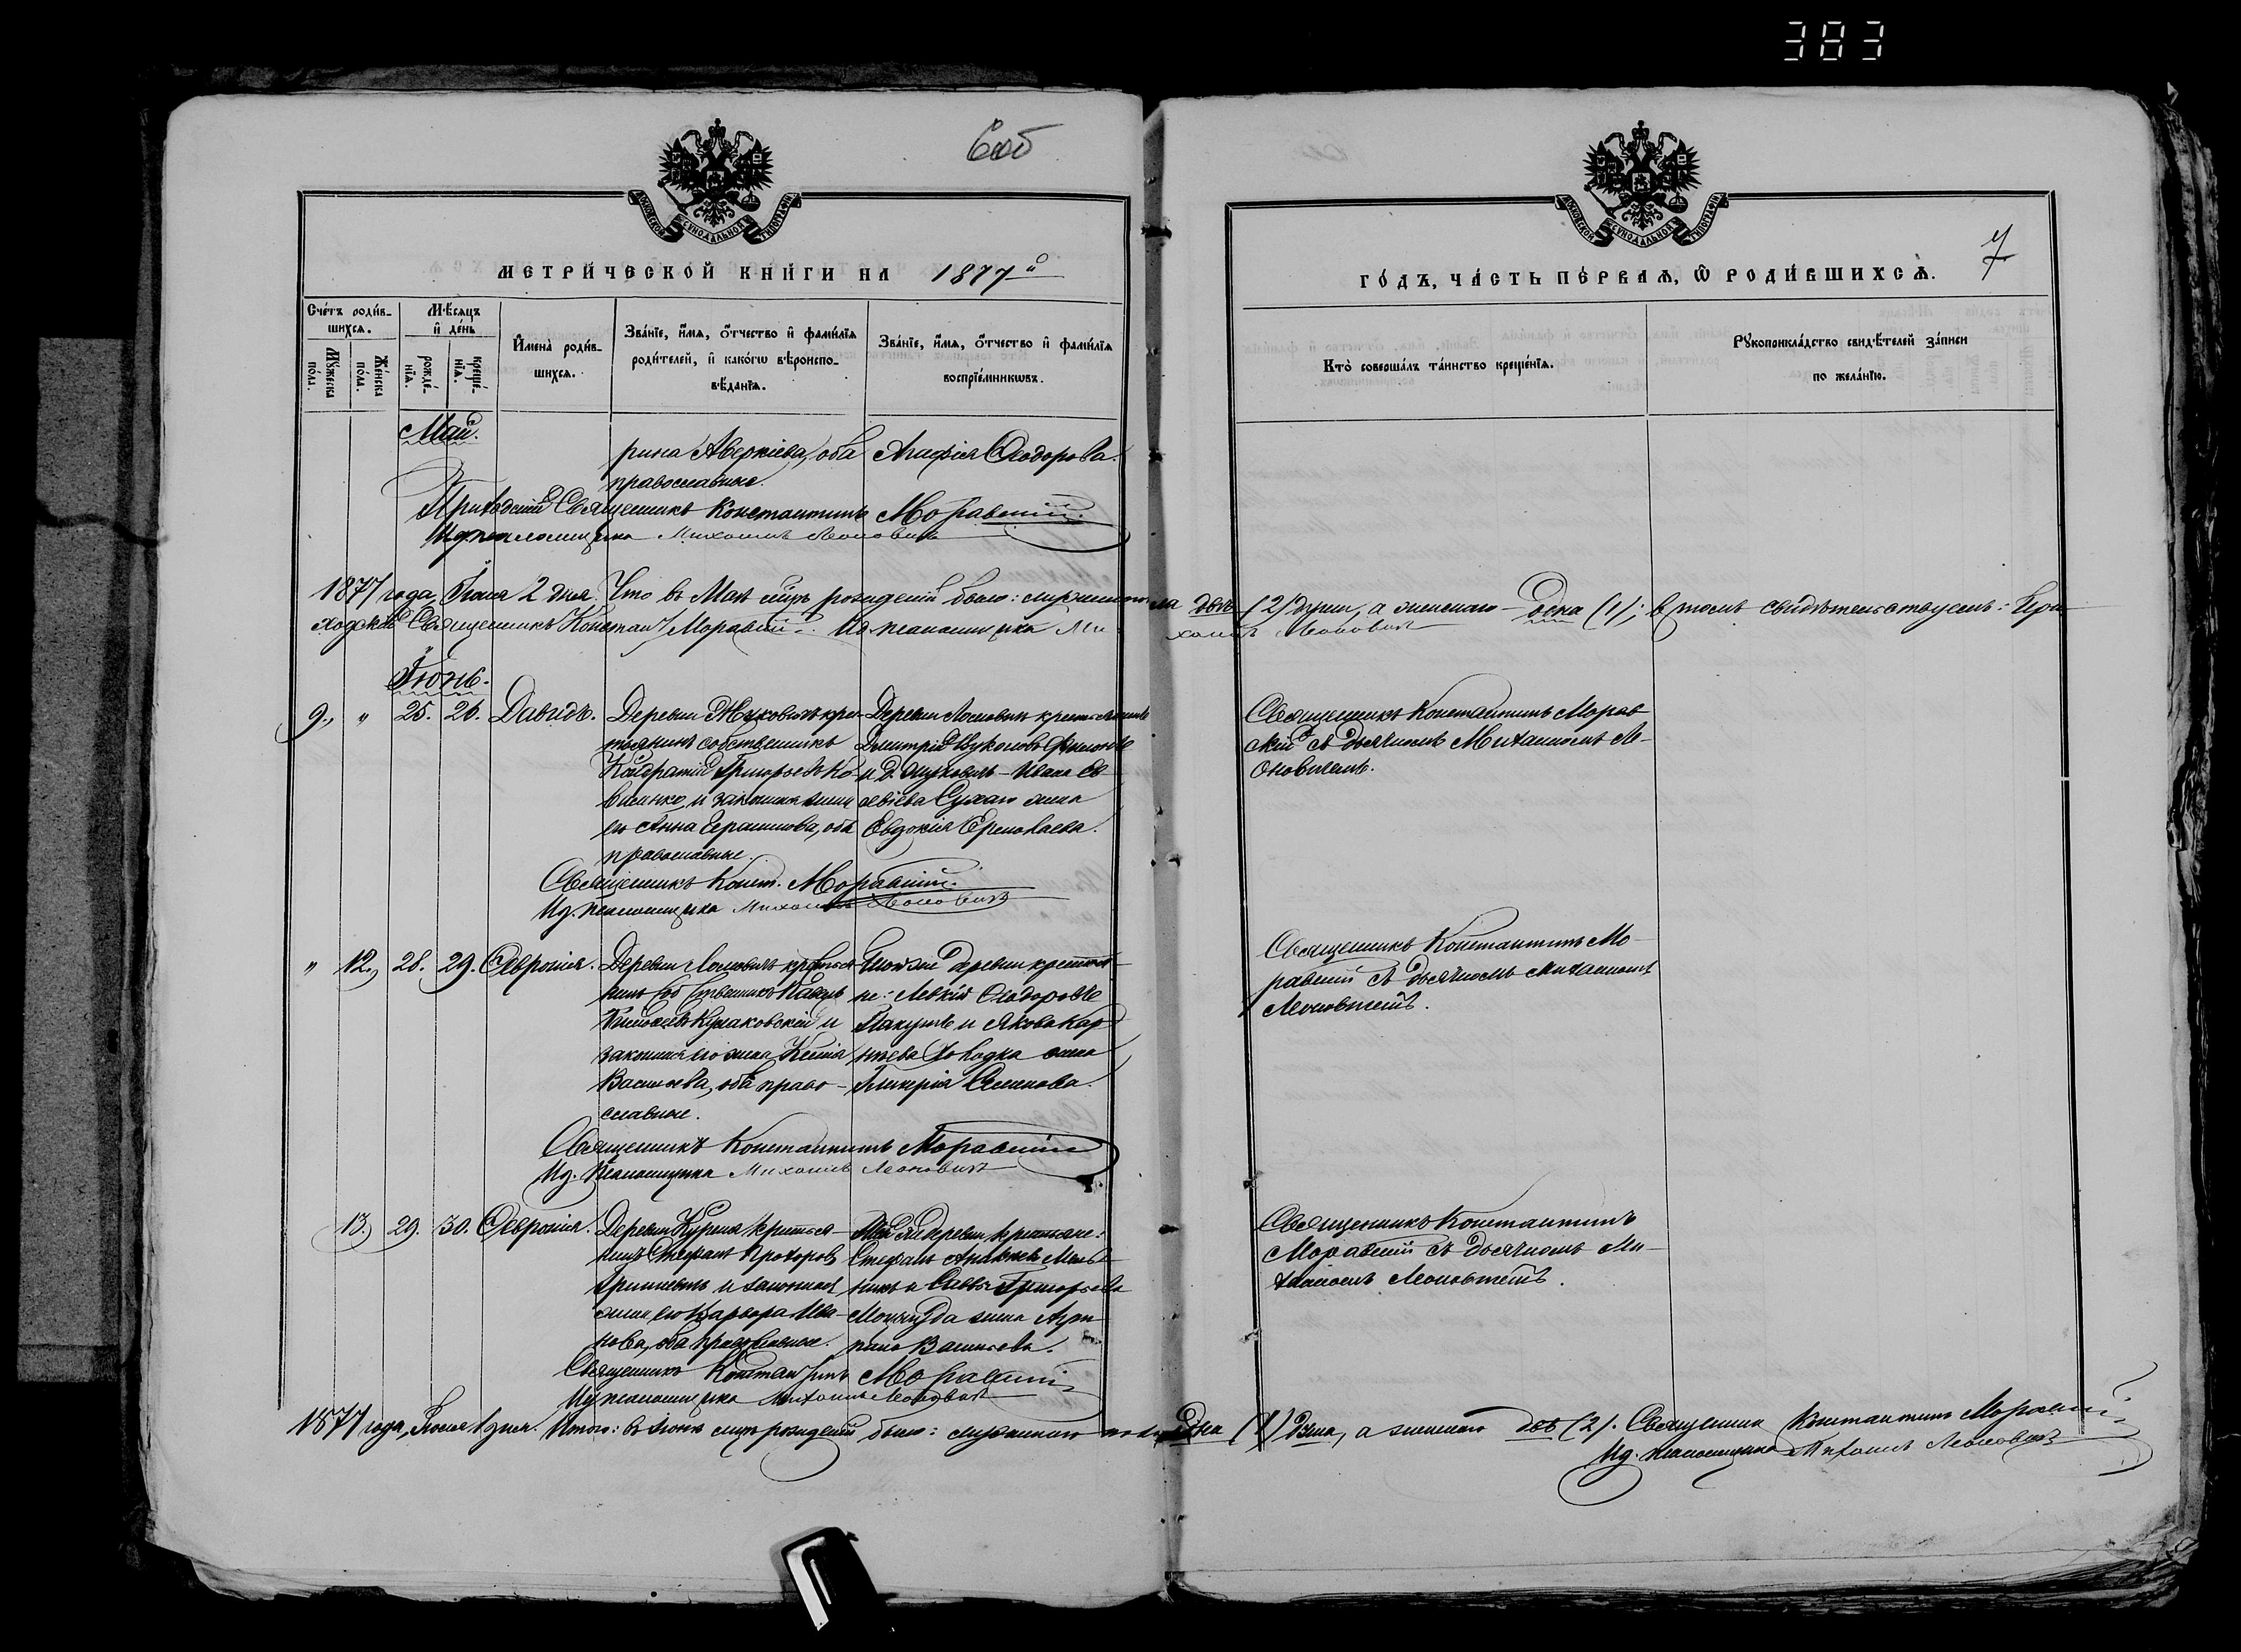 383
6об
МОСКОВСКОЙ СУНОДАЛЬНОЙ ТИПОГРАФІИ
МОСКОВСКОЙ СУНОДАЛЬНОЙ ТИПОГРАФІИ
7
МЕТРИ́ЧЕСКОЙ КНИ́ГИ НА 1877й
ГО́ДЪ, ЧА́СТЬ ПЕ́РВАѦ, Ѿ РОДИ́ВШИХСѦ.
Сче́тъ роди́в-
шихся.
Мꙋжеска по́ла.
Же́нска по́ла.
Мѣ́сяцъ и҆ де́нь
рожде́-
нїя.
креще́-
нїя.
И҆мена̀ роди́в-
шихся.
Зва́нїе, и҆́мя, ѻ҆́тчество и҆ фами́лїя
роди́телей, и҆ како́гѡ вѣроиспо-
вѣ́данїя.
Зва́нїе, и҆́мя, ѻ҆́тчество и҆ фами́лїя
воспрїе́мникѡвъ.
Кто̀ соверша́лъ та́инство креще́нїя.
Рꙋкоприкла́дство свидѣ́телей за́писи
по жела́нїю.
Май.
рина Аверкіева, оба
православные.
Агафія Ѳеодорова.
Приходскій Священникъ Константинъ Моравскій.
Ид. псаломщика Михаилъ Леоновичъ
1877 года, Іюня 2 дня. Что въ Маѣ сихъ рожденій было: мужескаго пола двѣ (2) души, а женскаго – одна (1); въ томъ свидѣтельствуемъ: При-
ходскій Священникъ Констант. Моравскій. Ид. псаломщика Михаилъ Леоновичъ
Іюнь.
9. " 25. 26. Давидъ.
Деревни Жуковичъ кре-
стьянинъ собственникъ
Кондратій Григорьевъ Ко-
и законная жена
его Анна Герасимова, оба
православные.
Дмитрій
и д. Жуковичъ – Ивана Ев-
сѣвіева жена
Евдокія Ермолаева.
Священникъ Константинъ Морав-
скій съ дьячкомъ Михаиломъ Ле-
оновичемъ.
Священникъ Конст. Моравскій.
Ид. псаломщика Михаилъ Леоновичъ
" 12. 28. 29. Ѳевронія.
Деревни крестья-
нинъ собственникъ Павелъ
Кулаковскій и
законная его жена Ксенія
Васильева, оба право-
славные.
Той же деревни крестья-
не: Левкій Ѳеодоровъ
и Якова Кар-
пѣева жена
Гликерія Семенова.
Священникъ Константинъ Мо-
равскій съ дьячкомъ Михаиломъ
Леоновичемъ.
Священникъ Константинъ Моравскій
Ид. псаломщика Михаилъ Леоновичъ
13. 29. 30. Ѳевронія.
Деревни крестья-
нинъ Стефанъ Прохоровъ
и законная
жена его Варвара Ива-
нова, оба православные.
Той же деревни крестьяне:
Стефанъ
и Саввы Григорьева
жена Агри-
пина Васильева.
Священникъ Константинъ
Моравскій съ дьячкомъ Ми-
хаиломъ Леоновичемъ.
Священникъ Константинъ Моравскій
Ид. псаломщика Михаилъ Леоновичъ
1877 года, Іюля 1 дня. Итого: въ Іюнѣ сихъ рожденій было: мужескаго пола одна (1) душа, а женскаго двѣ (2). Священникъ Константинъ Моравскій
Ид. псаломщика Михаилъ Леоновичъ